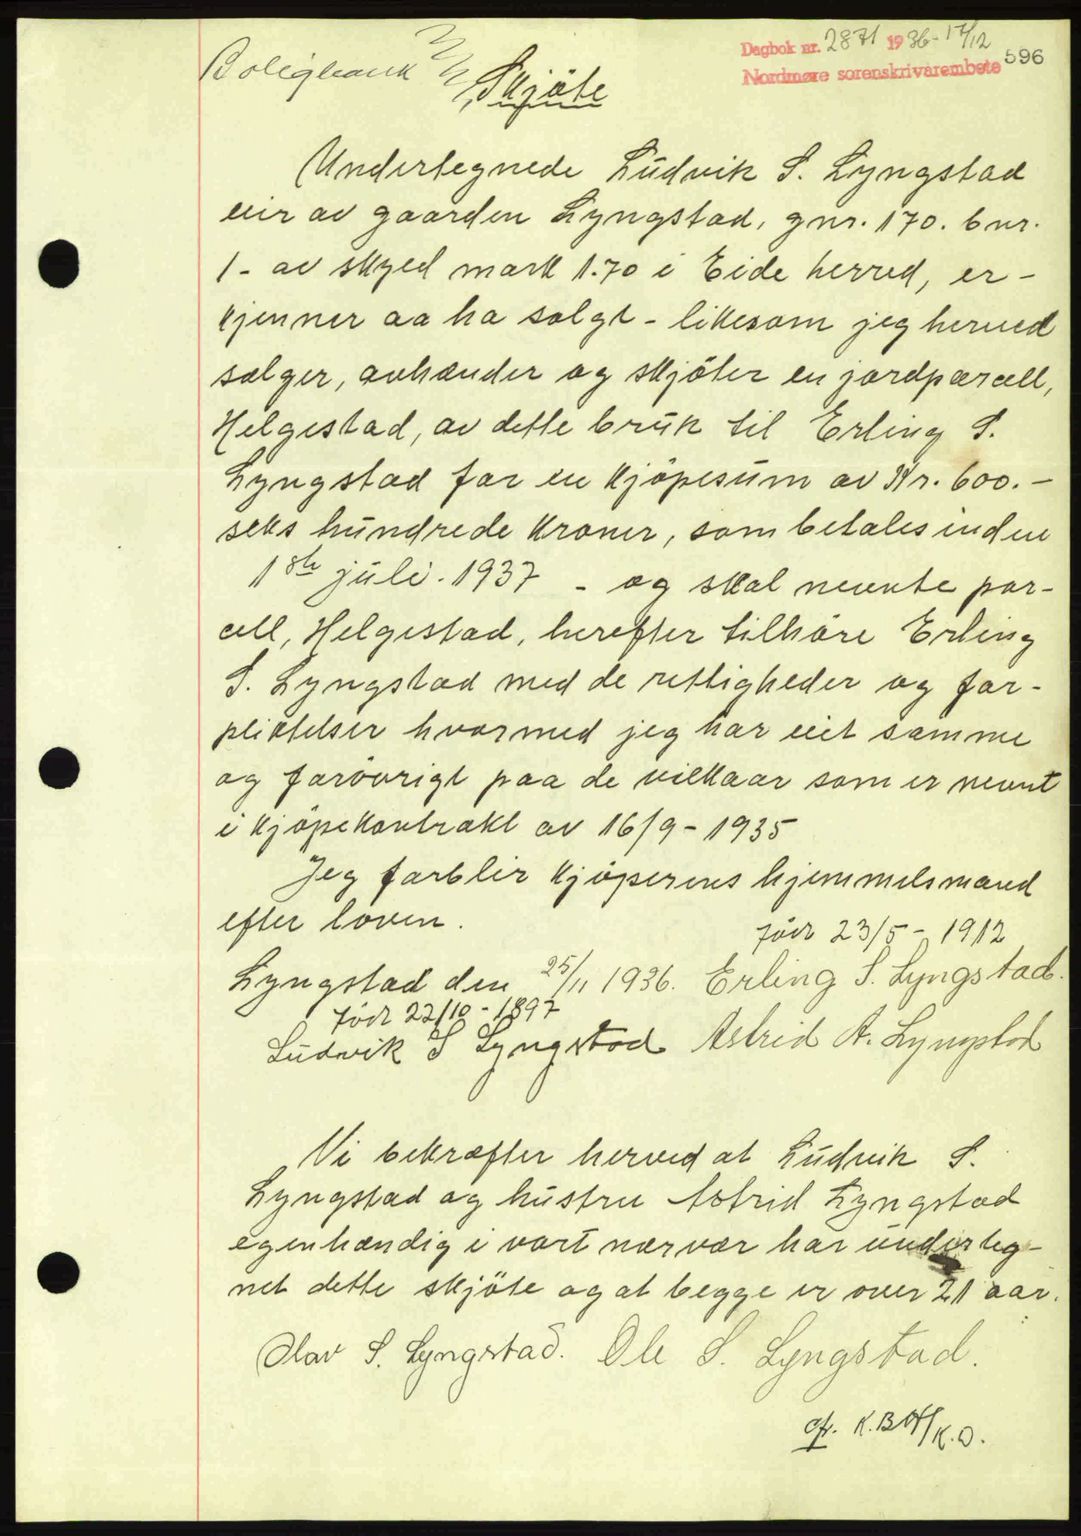 Dagbok nr. 2871 1936-17/12
Nordmøre sorenskrivarembete 596
Boligbank
Skjöte
Undertegnede Lúdvik S. Lyngstad
eier av gaarden Lyngstad, gnr. 170. bnr.
1- av skyld mark 1.70 i Eide herred, er-
kjenner aa ha solgt - likesom jeg herved
sælger, avhænder og skjöter en jordparcell,
Helgestad, av dette brúk til Erling S.
Lyngstad for en kjöpesúm av Kr. 600.-
seks húndrede kroner, som betales inden
1ste júli. 1937 - og skal nevnte par-
cell, Helgestad, herefter tilhöre Erling
S. Lyngstad med de rettigheder og for-
pliktelser hvormed jeg har eiet samme
og forövrigt paa de vilkaar som er nevnt
i kjöpekontrakt av 16/9-1935
Jeg forblir kjöperens hjemmelsmand
efter loven.
født 23/5-1912
Lyngstad den 25/11 1936. Erling S. Lyngstad.
født 22/10-1897
Lúdvik S Lyngstad Astrid A. Lyngstad
Vi bekræfter herved at Lúdvik S.
Lyngstad og hústru Astrid Lyngstad
egenhændig i vort nærvær har únderteg-
net dette skjöte og at begge er over 21 aar.
Olav S. Lyngstad. Ole S. Lyngstad.
K.D.